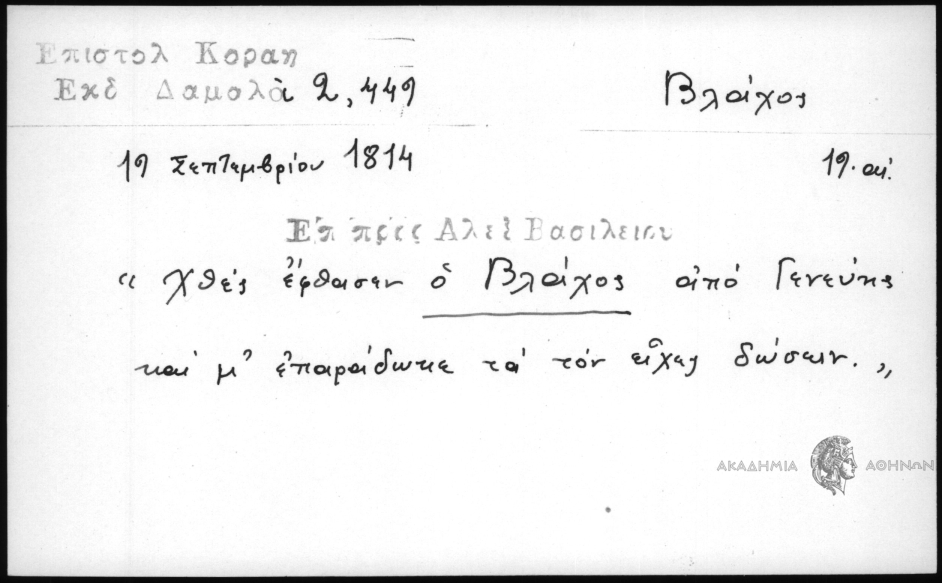 Επιστολ Κοραη
Εκδ Δαμαλὰ 2,449
Βλάχος
19 Σεπτεμβρίου 1814
19. αἰ.
Επ πρὸς Αλεξ Βασιλειου
"Χθές ἔφθασεν ὁ Βλάχος ἀπό Γενεύης
καί μ' ἐπαράδωκε τά τόν εἶχες δώσειν."
ΑΚΑΔΗΜΙΑ ΑΘΗΝΩΝ